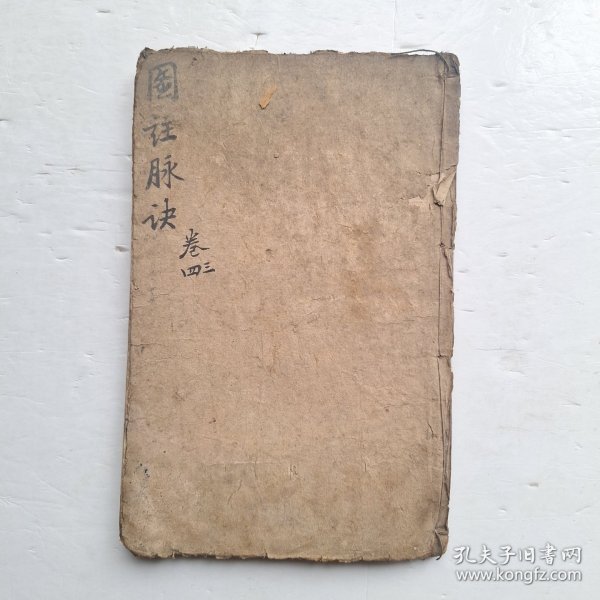 圖註脉诀
卷三四
孔夫子旧書网
www.kongfz.com